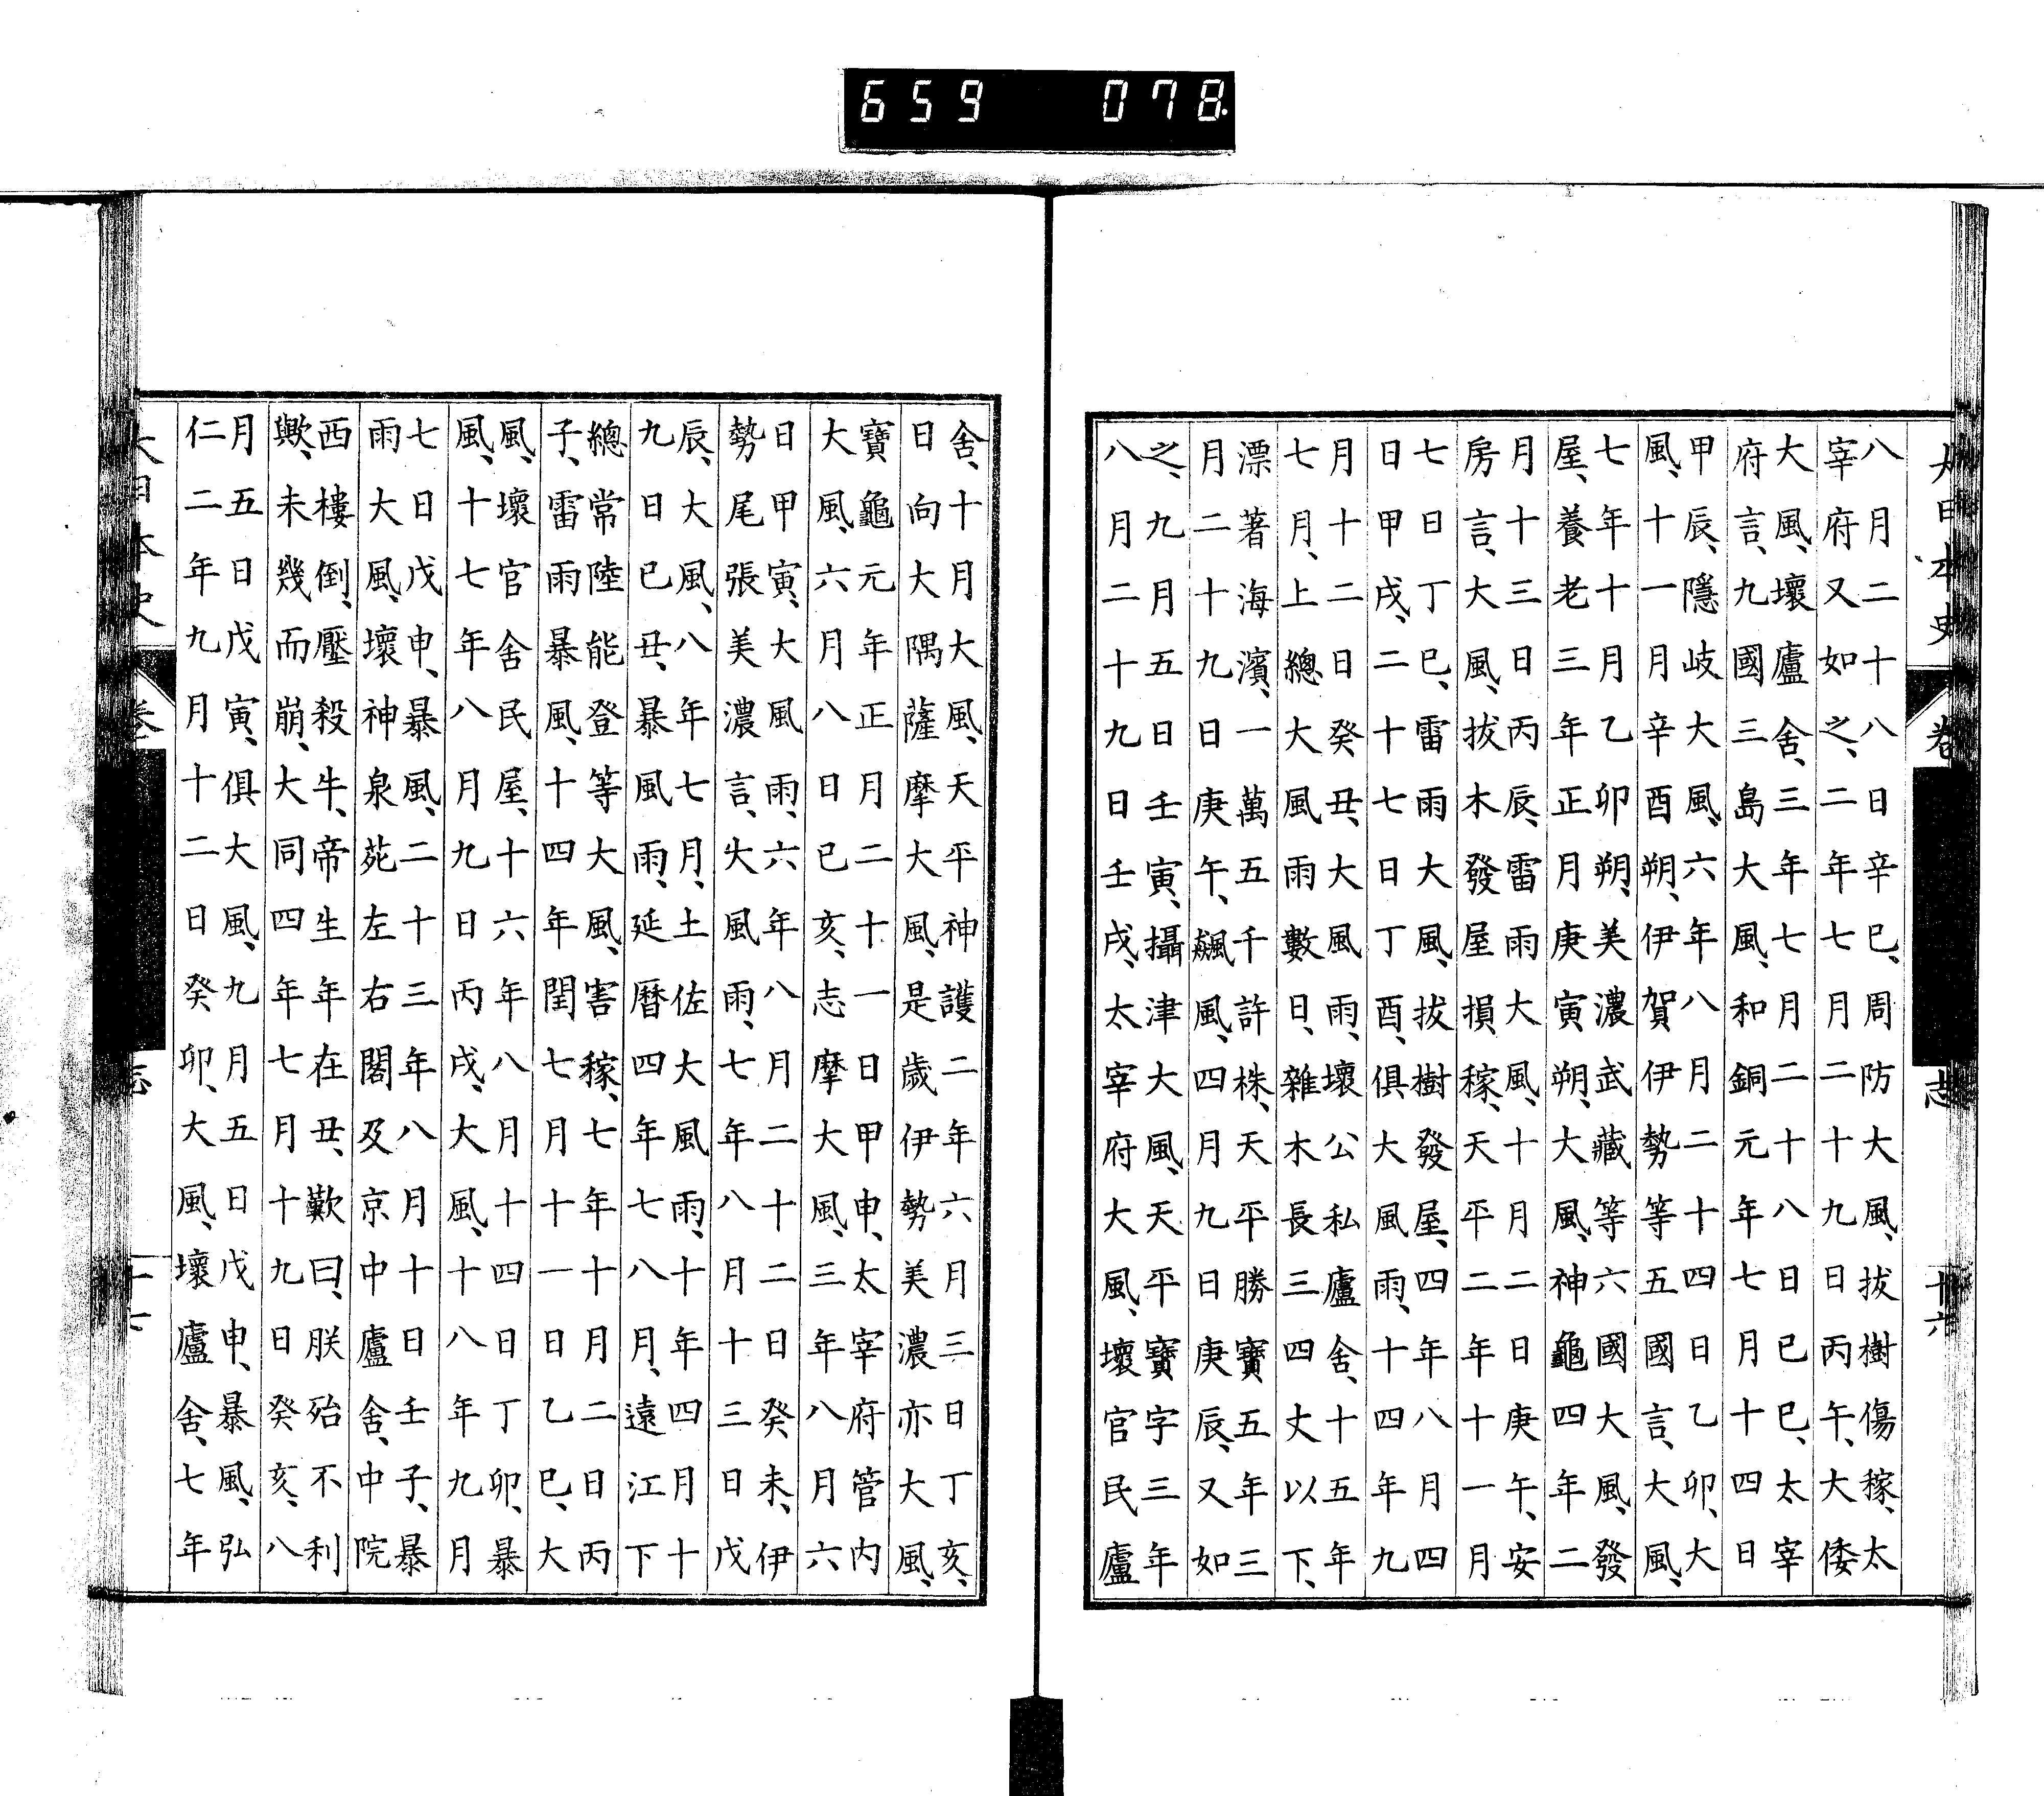 659 078
大日本史 卷 志 十六
八月二十八日辛巳、周防大風、拔樹傷稼、太
宰府又如之、二年七月二十九日丙午、大倭
大風、壞廬舍、三年七月二十八日己巳、太宰
府言、九國三島大風、和銅元年七月十四日
甲辰、隱岐大風、六年八月二十四日乙卯、大
風、十一月辛酉朔、伊賀伊勢等五國言、大風、
七年十月乙卯朔、美濃武藏等六國大風、發
屋、養老三年正月庚寅朔、大風、神龜四年二
月十三日丙辰、雷雨大風、十月二日庚午、安
房言、大風、拔木發屋損稼、天平二年十一月
七日丁巳、雷雨大風、拔樹發屋、四年八月四
日甲戌、二十七日丁酉、俱大風雨、十四年九
月十二日癸丑、大風雨、壞公私廬舍、十五年
七月、上總大風雨數日、雜木長三四丈以下、
漂著海濱、一萬五千許株、天平勝寶五年三
月二十九日庚午、飆風、四月九日庚辰、又如
之、九月五日壬寅、攝津大風、天平寶字三年
八月二十九日壬戌、太宰府大風、壞官民廬
舍、十月大風、天平神護二年六月三日丁亥、
日向大隅薩摩大風、是歲伊勢美濃亦大風、
寶龜元年正月二十一日甲申、太宰府管內
大風、六月八日己亥、志摩大風、三年八月六
日甲寅、大風雨、六年八月二十二日癸未、伊
勢尾張美濃言、大風雨、七年八月十三日戊
辰、大風、八年七月、土佐大風雨、十年四月十
九日己丑、暴風雨、延曆四年七八月、遠江下
總常陸能登等大風、害稼、七年十月二日丙
子、雷雨暴風、十四年閏七月十一日乙巳、大
風、壞官舍民屋、十六年八月十四日丁卯、暴
風、十七年八月九日丙戌、大風、十八年九月
七日戊申、暴風、二十三年八月十日壬子、暴
雨大風、壞神泉苑左右閣及京中廬舍、中院
西樓倒、壓殺牛、帝生年在丑、歎曰、朕殆不利
歟、未幾而崩、大同四年七月十九日癸亥、八
月五日戊寅、俱大風、九月五日戊申、暴風、弘
仁二年九月十二日癸卯、大風、壞廬舍、七年
大日本史 卷 志 十七